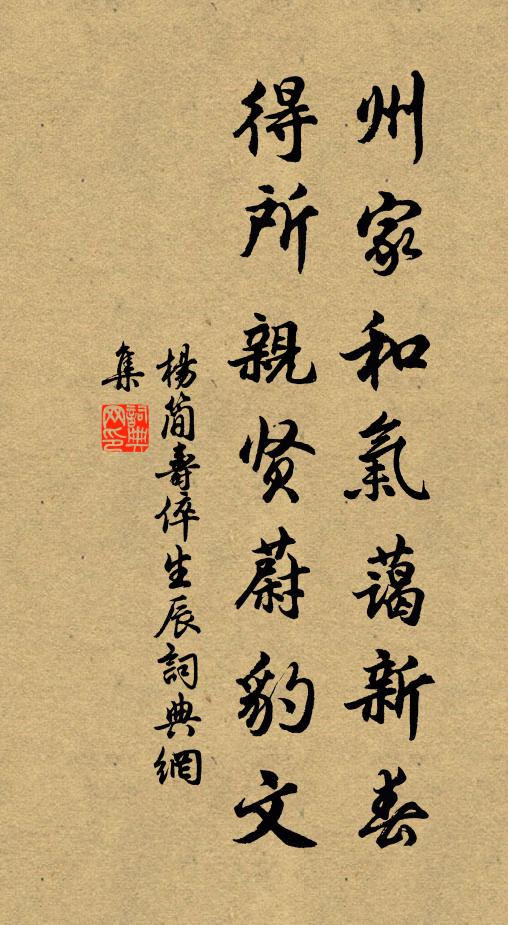 州家和氣藹新春
得所親贤蔚豹文
楊简壽倅生辰詞典網
集
詞典
网印